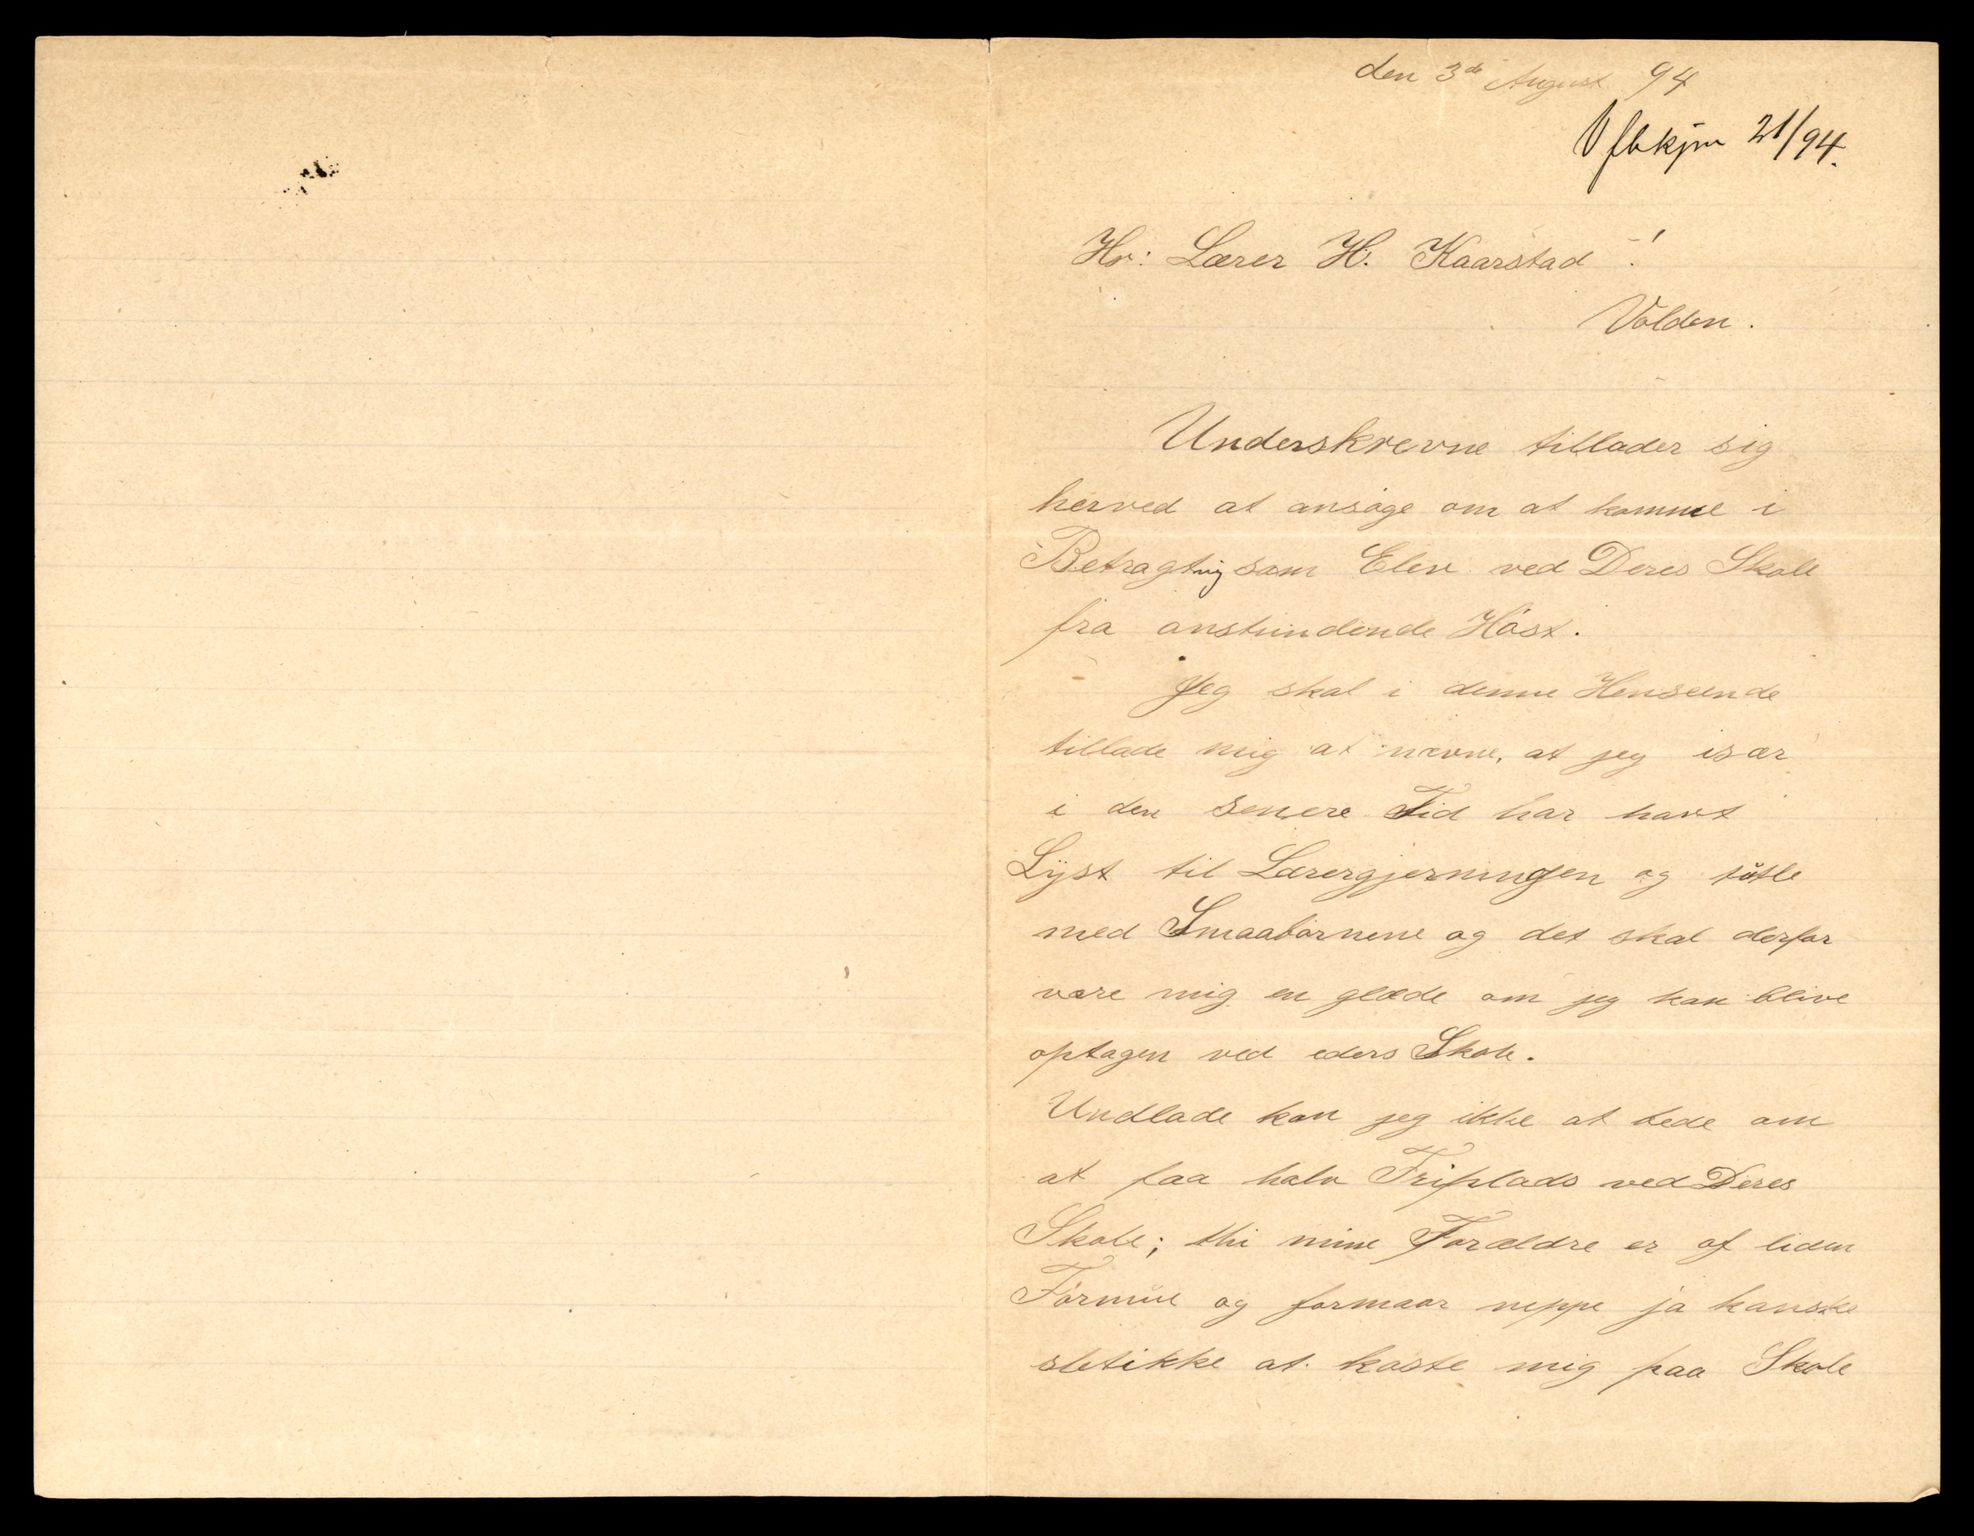 den 3de August 94
21/94.
Hr: Lærer H. Kaarstad !
Volden.
Underskrevne tillader sig
herved at ansøge om at komme i
Betragtnig som Elev ved Deres Skole
fra anstundende Høst.
Jeg skal i denne Henseende
tillade mig at nævne, at jeg især
i den senere Tid har havt
Lyst til Lærergjerningen og
med Smaabørnene og det skal derfor
være mig en glæde om jeg kan blive
optagen ved eders Skole.
Undlade kan jeg ikke at bede om
at faa halv Friplads ved Deres
Skole; thi mine Forældre er af liden
Formue og formaar neppe ja kanske
sletikke at koste mig paa Skole